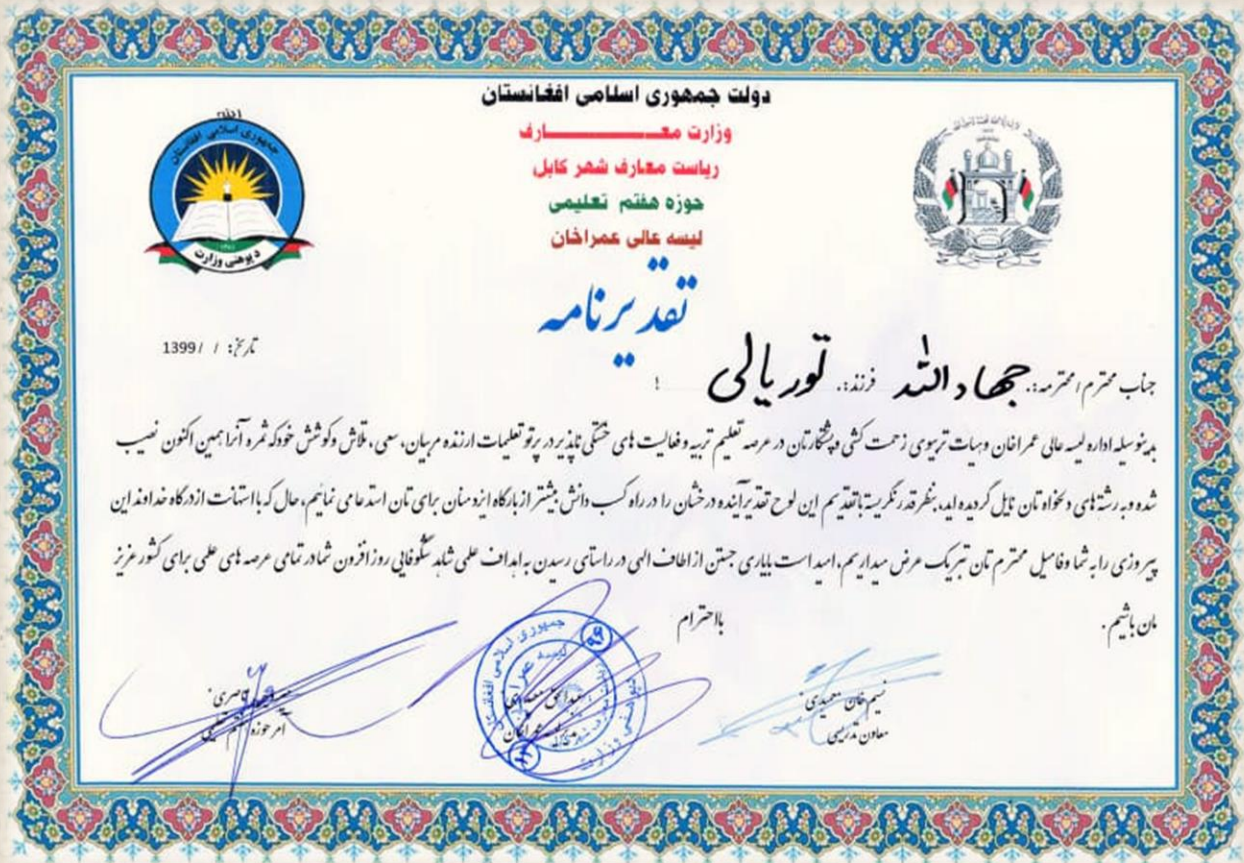 دولت جمهوری اسلامی افغانستان
وزارت معـــــــــارف
ریاست معارف شهر کابل
حوزه هفتم تعلیمی
لیسه عالی عمراخان
جمهوری اسلامی افغانستان
د پوهنی وزارت
تقدیرنامه
تاریخ: / / 1399
جناب محترم / محترمه: جهاد الله فرزند: توریالی !
بدینوسیله اداره لیسه عالی عمراخان وهیات تربیوی زحمت کشی وپشتکارتان در عرصه تعلیم تربیه و فعالیت های خستگی ناپذیر در پرتو تعلیمات ارزنده مربیان، سعی، تلاش وکوشش خود که ثمره آنرا همین اکنون نصیب
شده و به رشته های دلخواه تان نایل گردیده اید، بنظر قدر نگریسته با تقدیم این لوح تقدیر آینده درخشان را در راه کسب دانش بیشتر از بارگاه ایزد منان برای تان استدعا می نمائیم، حال که با استهانت از درگاه خداوند این
پیروزی را به شما وفامیل محترم تان تبریک عرض میداریم، امید است بایاری جستن از الطاف الهی در راستای رسیدن به اهداف علمی شاهد شگوفایی روز افزون شما در تمامی عرصه های علمی برای کشور عزیز
مان باشیم.
بااحترام
نسیم خان مجیدی
معاون تدریسی
جمهوری اسلامی
ناصری
آمر حوزه